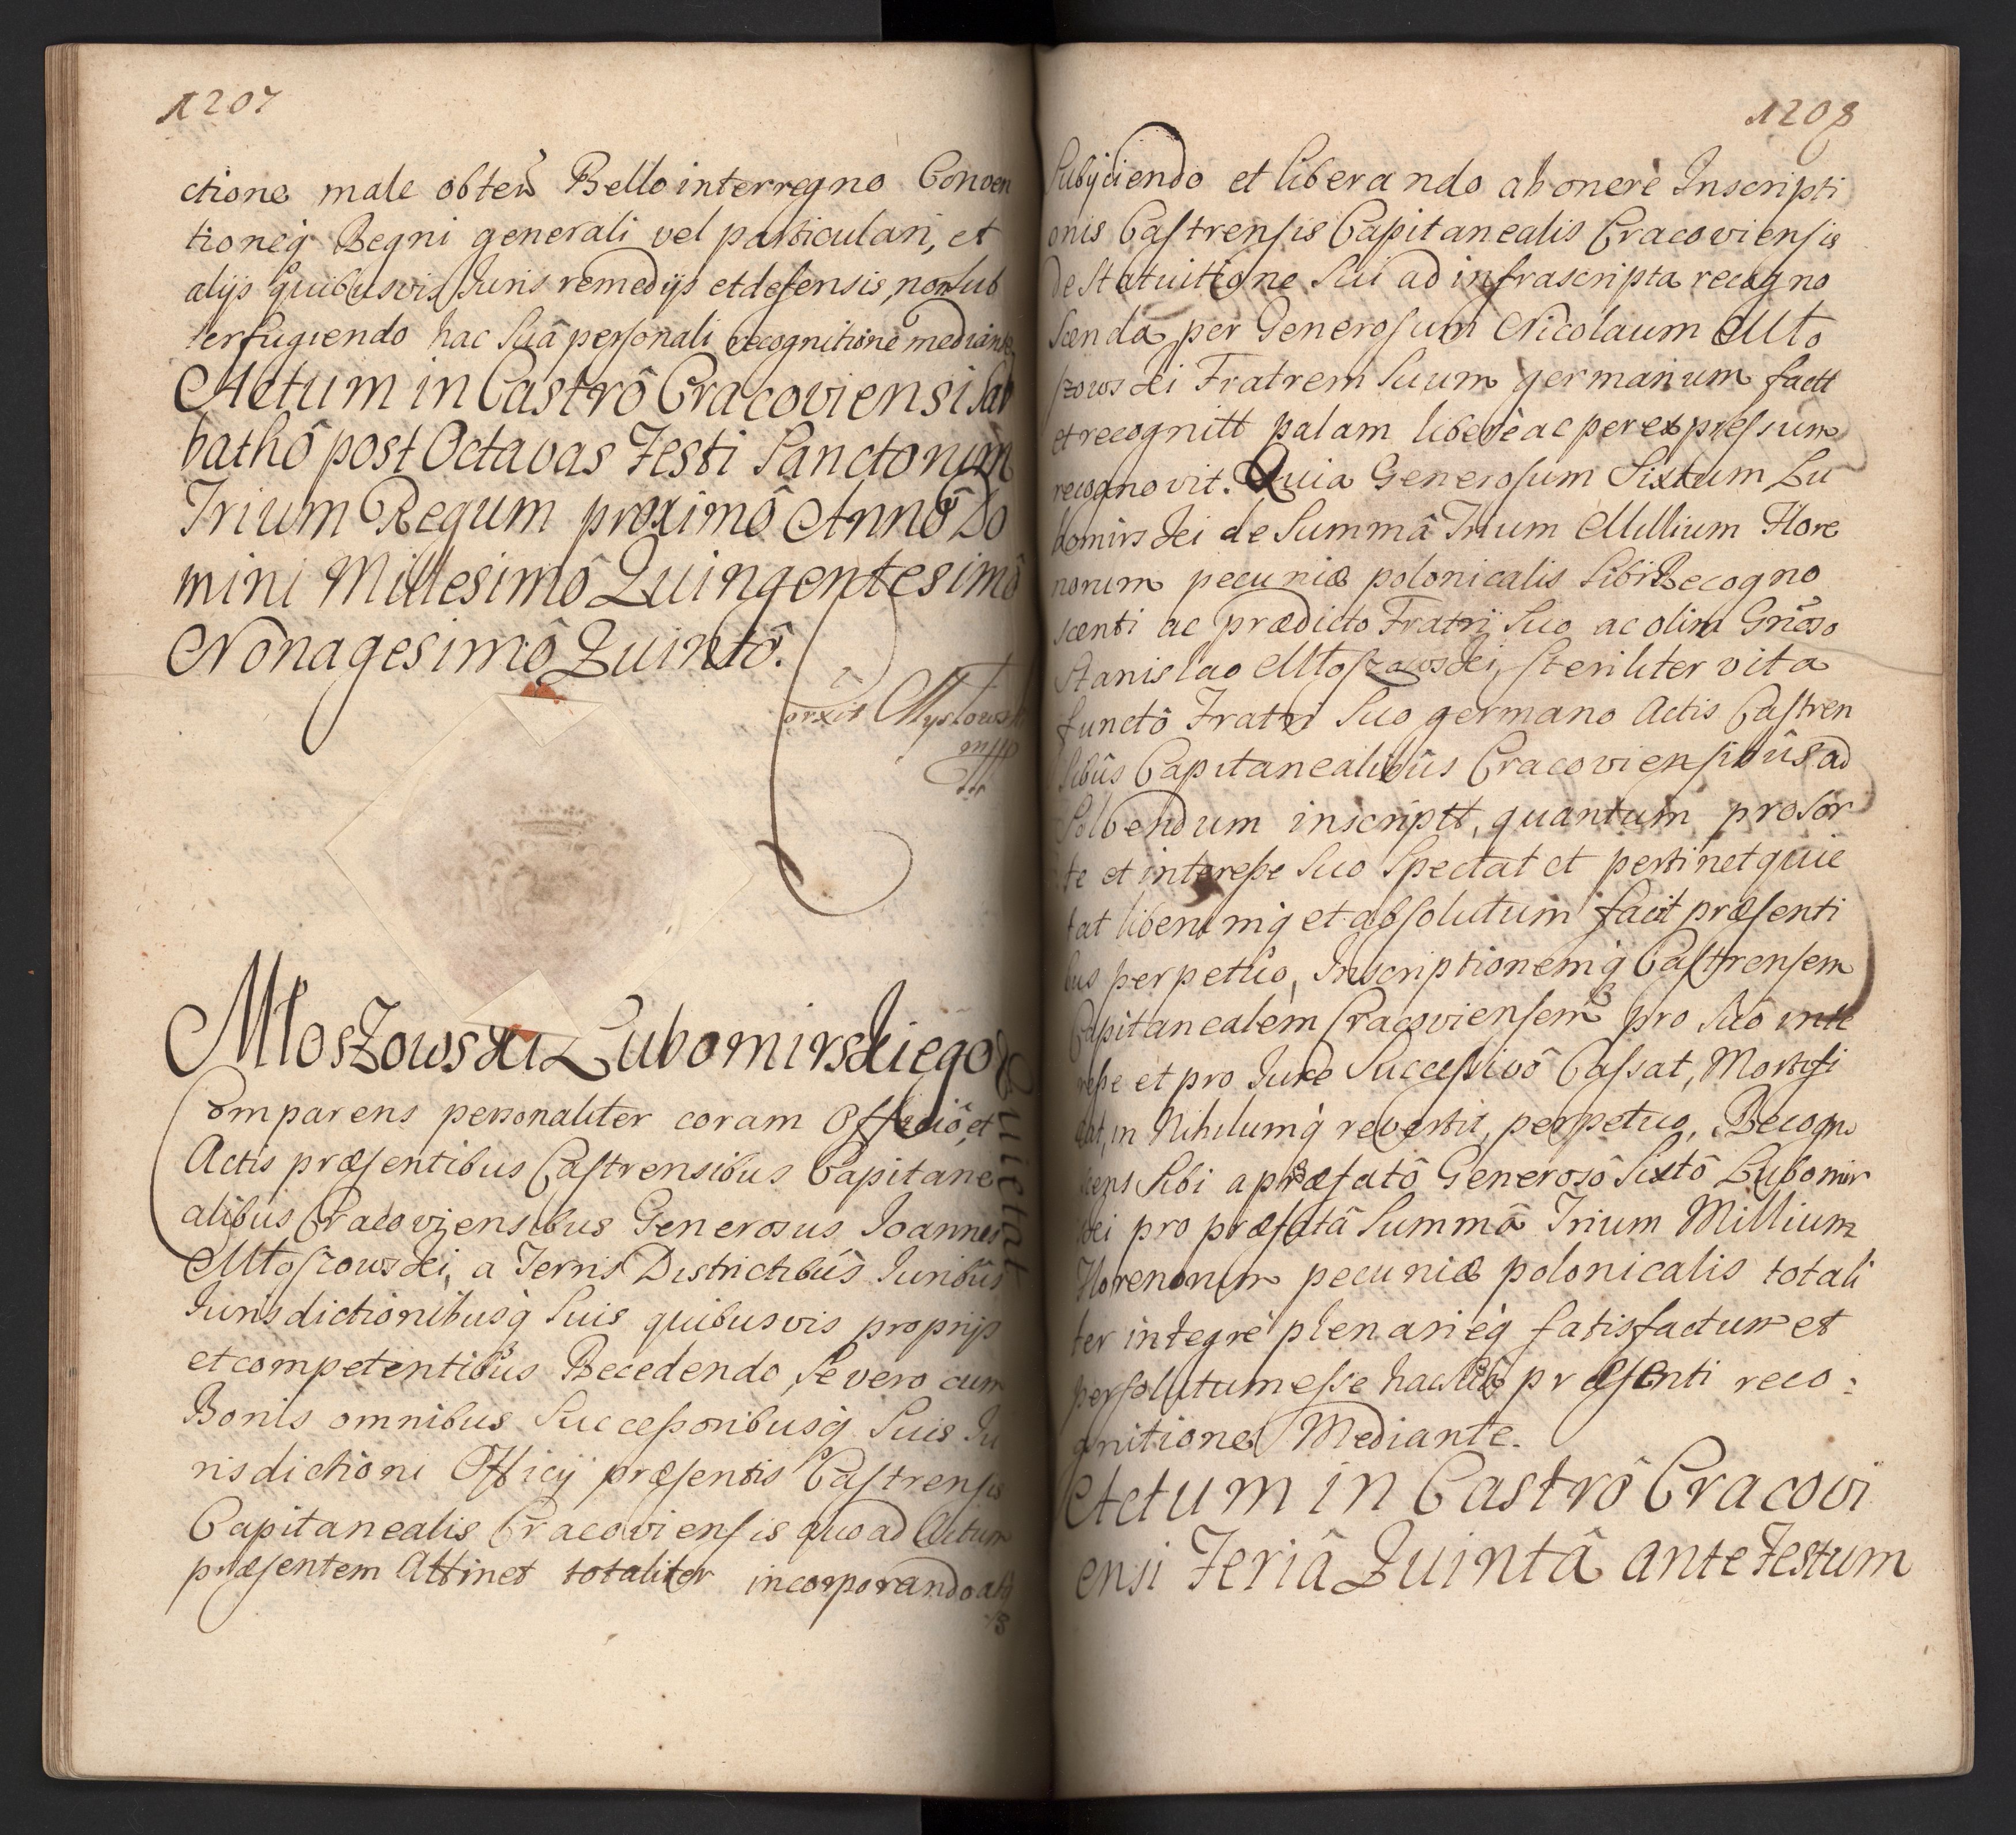 1207
ctione male obten Bello interregno Conven
tioneq̀ Regni generali vel particulari, et
alijs quibusvis Juris remedijs et defensis, non sub
terfugiendo hac Suâ personali recognitione mediante
Actum in Castrô Cracoviensi Sab
bathô post Octavas Festi Sanctorum
Trium Regum proximô Annô Do
mini Millesimô Quingentesimô
Nonagesimô Quintô.
Młoszowski Lubomirskiego
Quietat
Comparens personaliter coram Officiô, et
Actis præsentibus Castrensibus Capitane
alibus Cracoviensibus Generosus Joannes
Młoszowski, a Terris Districtibûs Juribûs
Jurisdictionibusq̀ Suis quibusvis proprijs
et competentibûs Recedendo, Se vero cum
Bonis omnibus Successoribusq̀ Suis Ju
risdictioni Officij præsentis Castrensis
Capitanealis Cracoviensis quoad Actum
præsentem Attinet totaliter incorporando atq̀
1208
Subÿciendo et liberando ab onere Inscripti
onis Castrensis Capitanealis Cracoviensis
de Statuitione Sui ad infrascripta recogno
scenda per Generosum Nicolaum Mło
szowski Fratrem Suum germanum factt
et recognitt palam liberè ac per expressum
recognovit. Quia Generosum Sixtum Lu
bomirski de Summâ Trium Millium Flore
norum pecuniæ polonicalis Sibi Recogno
scenti ac prædicto Fratri Suo ac olim Gnôso
Stanislao Młoszowski, steriliter vita
functô Fratri Suo germano Actis Castren
sibûs Capitanealibûs Cracoviensibûs ad
Solvendum inscriptt, quantum pro Sor
te et interesse Suo Spectat et pertinet quie
tat liberumq̀ et absolutum facit præsenti
bus perpetûo, Inscriptionemq̀ Castrensem
Capitanealem Cracoviensem pro Suô inte
resse et pro Jure Successivô Cassat, Mortifi
cat, in Nihilumq̀ revertit, perpetuo, Recogno
scens Sibi a præfatô Generosô Sixtô Lubomir
ski pro præfatâ Summâ Trium Millium
Florenorum pecuniæ polonicalis totali
ter integrè plenarieq̀ satisfactum et
persolutum esse hac Suâ præsenti reco:
gnitione Mediante.
Actum in Castrô Cracovi
ensi Feriâ Quintâ ante Festum